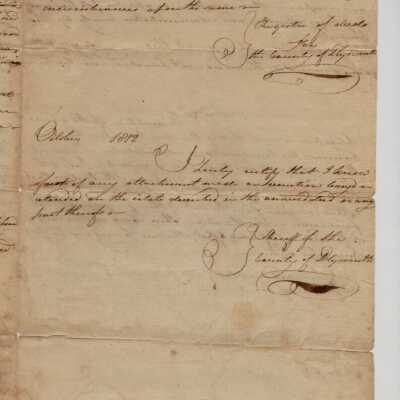 incumbrances upon the same
Register of deeds
for
the County of Plymouth
October 1812
I hereby certify that I know
of any attachment execution
extended on the estate described in the or any
part thereof
Sheriff of the
County of Plymouth